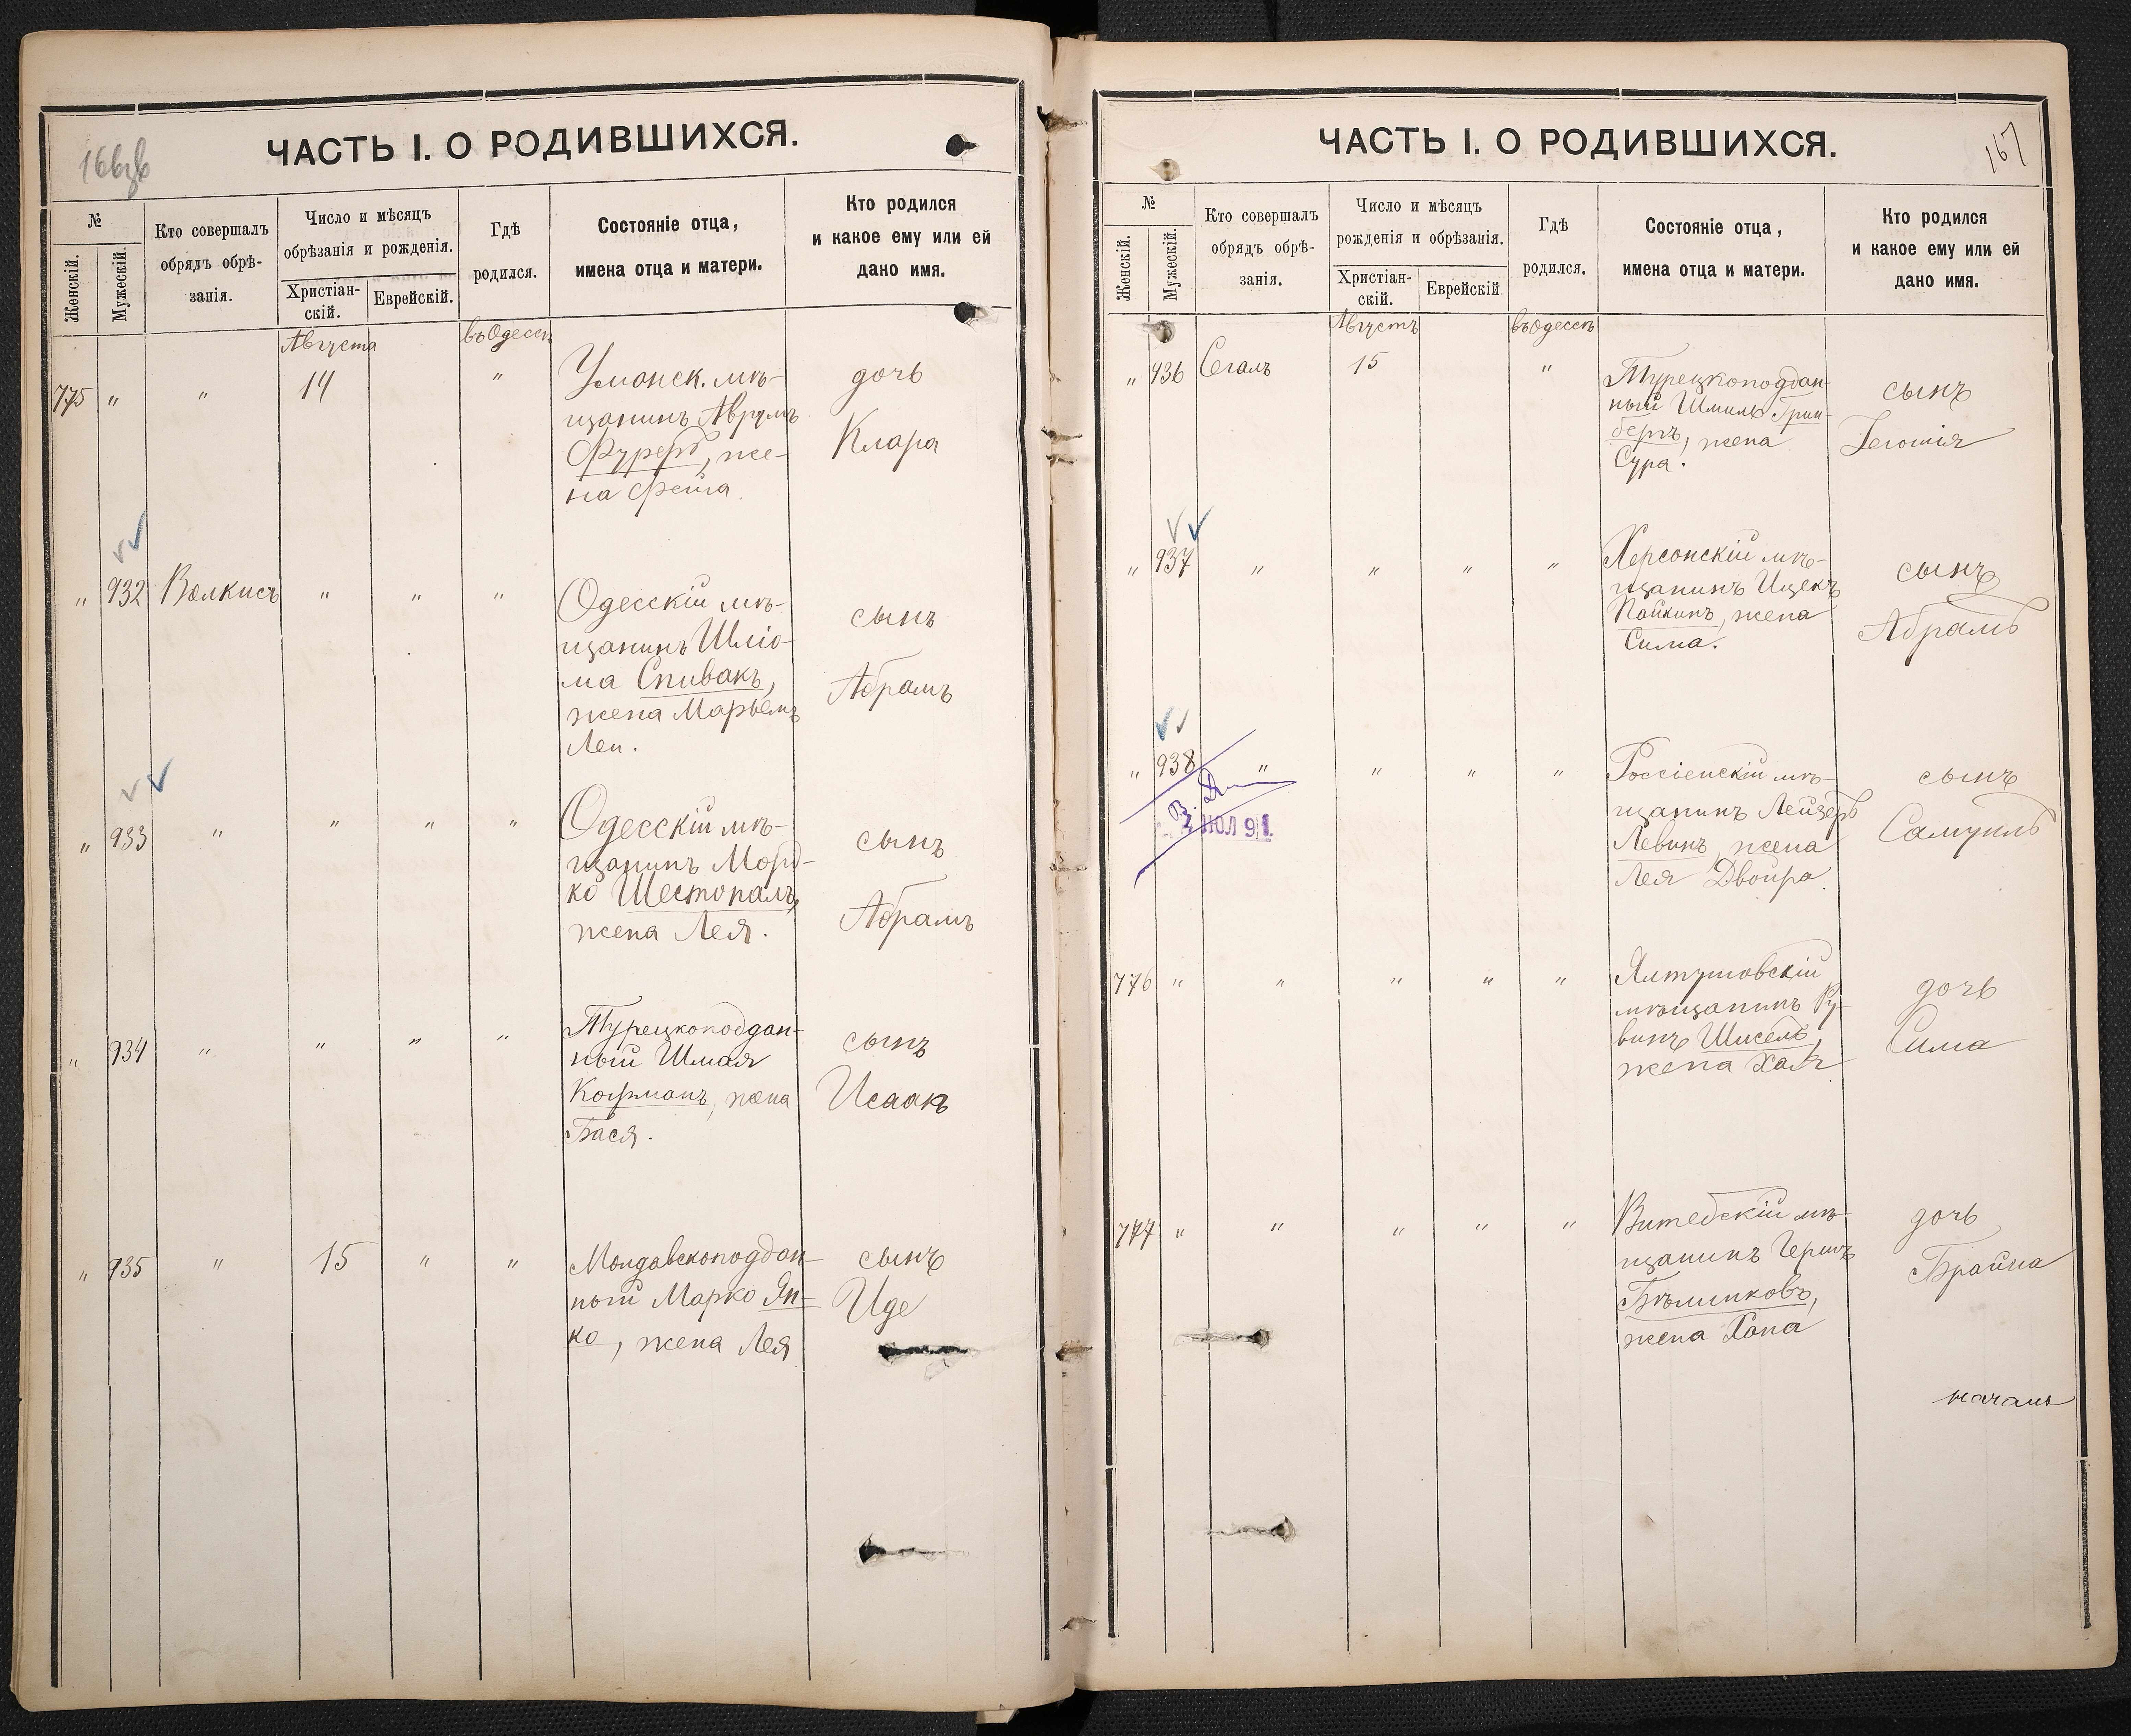 ЧАСТЬ I. О РОДИВШИХСЯ.
№
Женскій.
Мужескій.
Кто совершалъ
обрядъ обрѣ-
занія.
Число и мѣсяцъ
обрѣзанія и рожденія.
Христіан-
скій.
Еврейскій.
Гдѣ
родился.
Состояніе отца,
имена отца и матери.
Кто родился
и какое ему или ей
дано имя.
Августа
въ Одессѣ
775 " " 14 "
Уманск. мѣ-
щанинъ Аврумъ
Фуреръ, же-
на Фейга
дочь
Клара
" 932 Волкисъ " " "
Одесскій мѣ-
щанинъ Шліо-
ма Спивакъ,
жена Марьемъ
Леи.
сынъ
Абрамъ
" 933 " " " "
Одесскій мѣ-
щанинъ Морд-
ко Шестопалъ,
жена Лея.
сынъ
Абрамъ
" 934 " " " "
Турецкоподдан-
ный Шмая
Кофманъ, жена
Бася.
сынъ
Исаакъ
" 935 " 15 " "
Молдавскоподдан-
ный Марко Ян-
ко, жена Лея
сынъ
Иде
ЧАСТЬ I. О РОДИВШИХСЯ.
167
№
Женскій.
Мужескій.
Кто совершалъ
обрядъ обрѣ-
занія.
Число и мѣсяцъ
рожденія и обрѣзанія.
Христіан-
скій.
Еврейскій
Гдѣ
родился.
Состояніе отца,
имена отца и матери.
Кто родился
и какое ему или ей
дано имя.
Августъ
въ Одессѣ
" 936 Сегалъ 15 "
Турецкоподдан-
ный Шмиль Грин-
бергъ, жена
Сура.
сынъ
" 937 " " " "
Херсонскій мѣ-
щанинъ Ицекъ
Пайкинъ, жена
Сима.
сынъ
Абрамъ
" 938 " " " "
ИЮЛ 91.
Россіенскій мѣ-
щанинъ Лейзеръ
Левинъ, жена
Лея Двойра.
сынъ
Самуилъ
776 " " " " "
Ялтушовскій
мѣщанинъ Ру-
винъ Шисель,
жена Хая
дочь
Сима
777 " " " " "
Витебскій мѣ-
щанинъ Гершъ
Бѣлинковъ,
жена Хана
дочь
Брайна